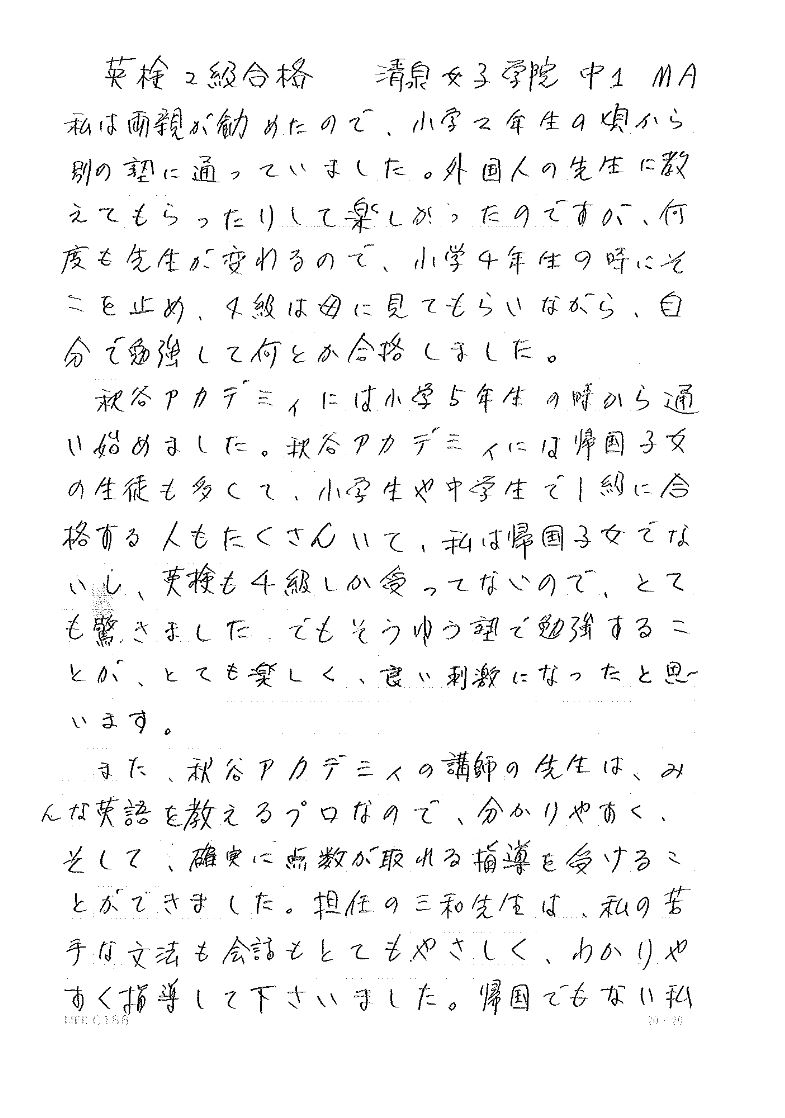 英検2級合格　清泉女子学院 中1 MA
私は両親が勧めたので、小学2年生の頃から
別の塾に通っていました。外国人の先生に教
えてもらったりして楽しかったのですが、何
度も先生が変わるので、小学4年生の時にそ
こを止め、4級は母に見てもらいながら、自
分で勉強して何とか合格しました。
秋谷アカデミィには小学5年生の時から通
い始めました。秋谷アカデミィには帰国子女
の生徒も多くて、小学生や中学生で1級に合
格する人もたくさんいて、私は帰国子女でな
いし、英検も4級しか受ってないので、とて
も驚きました でもそうゆう塾で勉強するこ
とが、とても楽しく、良い刺激になったと思
います。
また、秋谷アカデミィの講師の先生は、み
んな英語を教えるプロなので、分かりやすく、
そして、確実に点数が取れる指導を受けるこ
とができました。担任の三和先生は、私の苦
手な文法も会話もとてもやさしく、わかりや
すく指導して下さいました。帰国でもない私
20×20